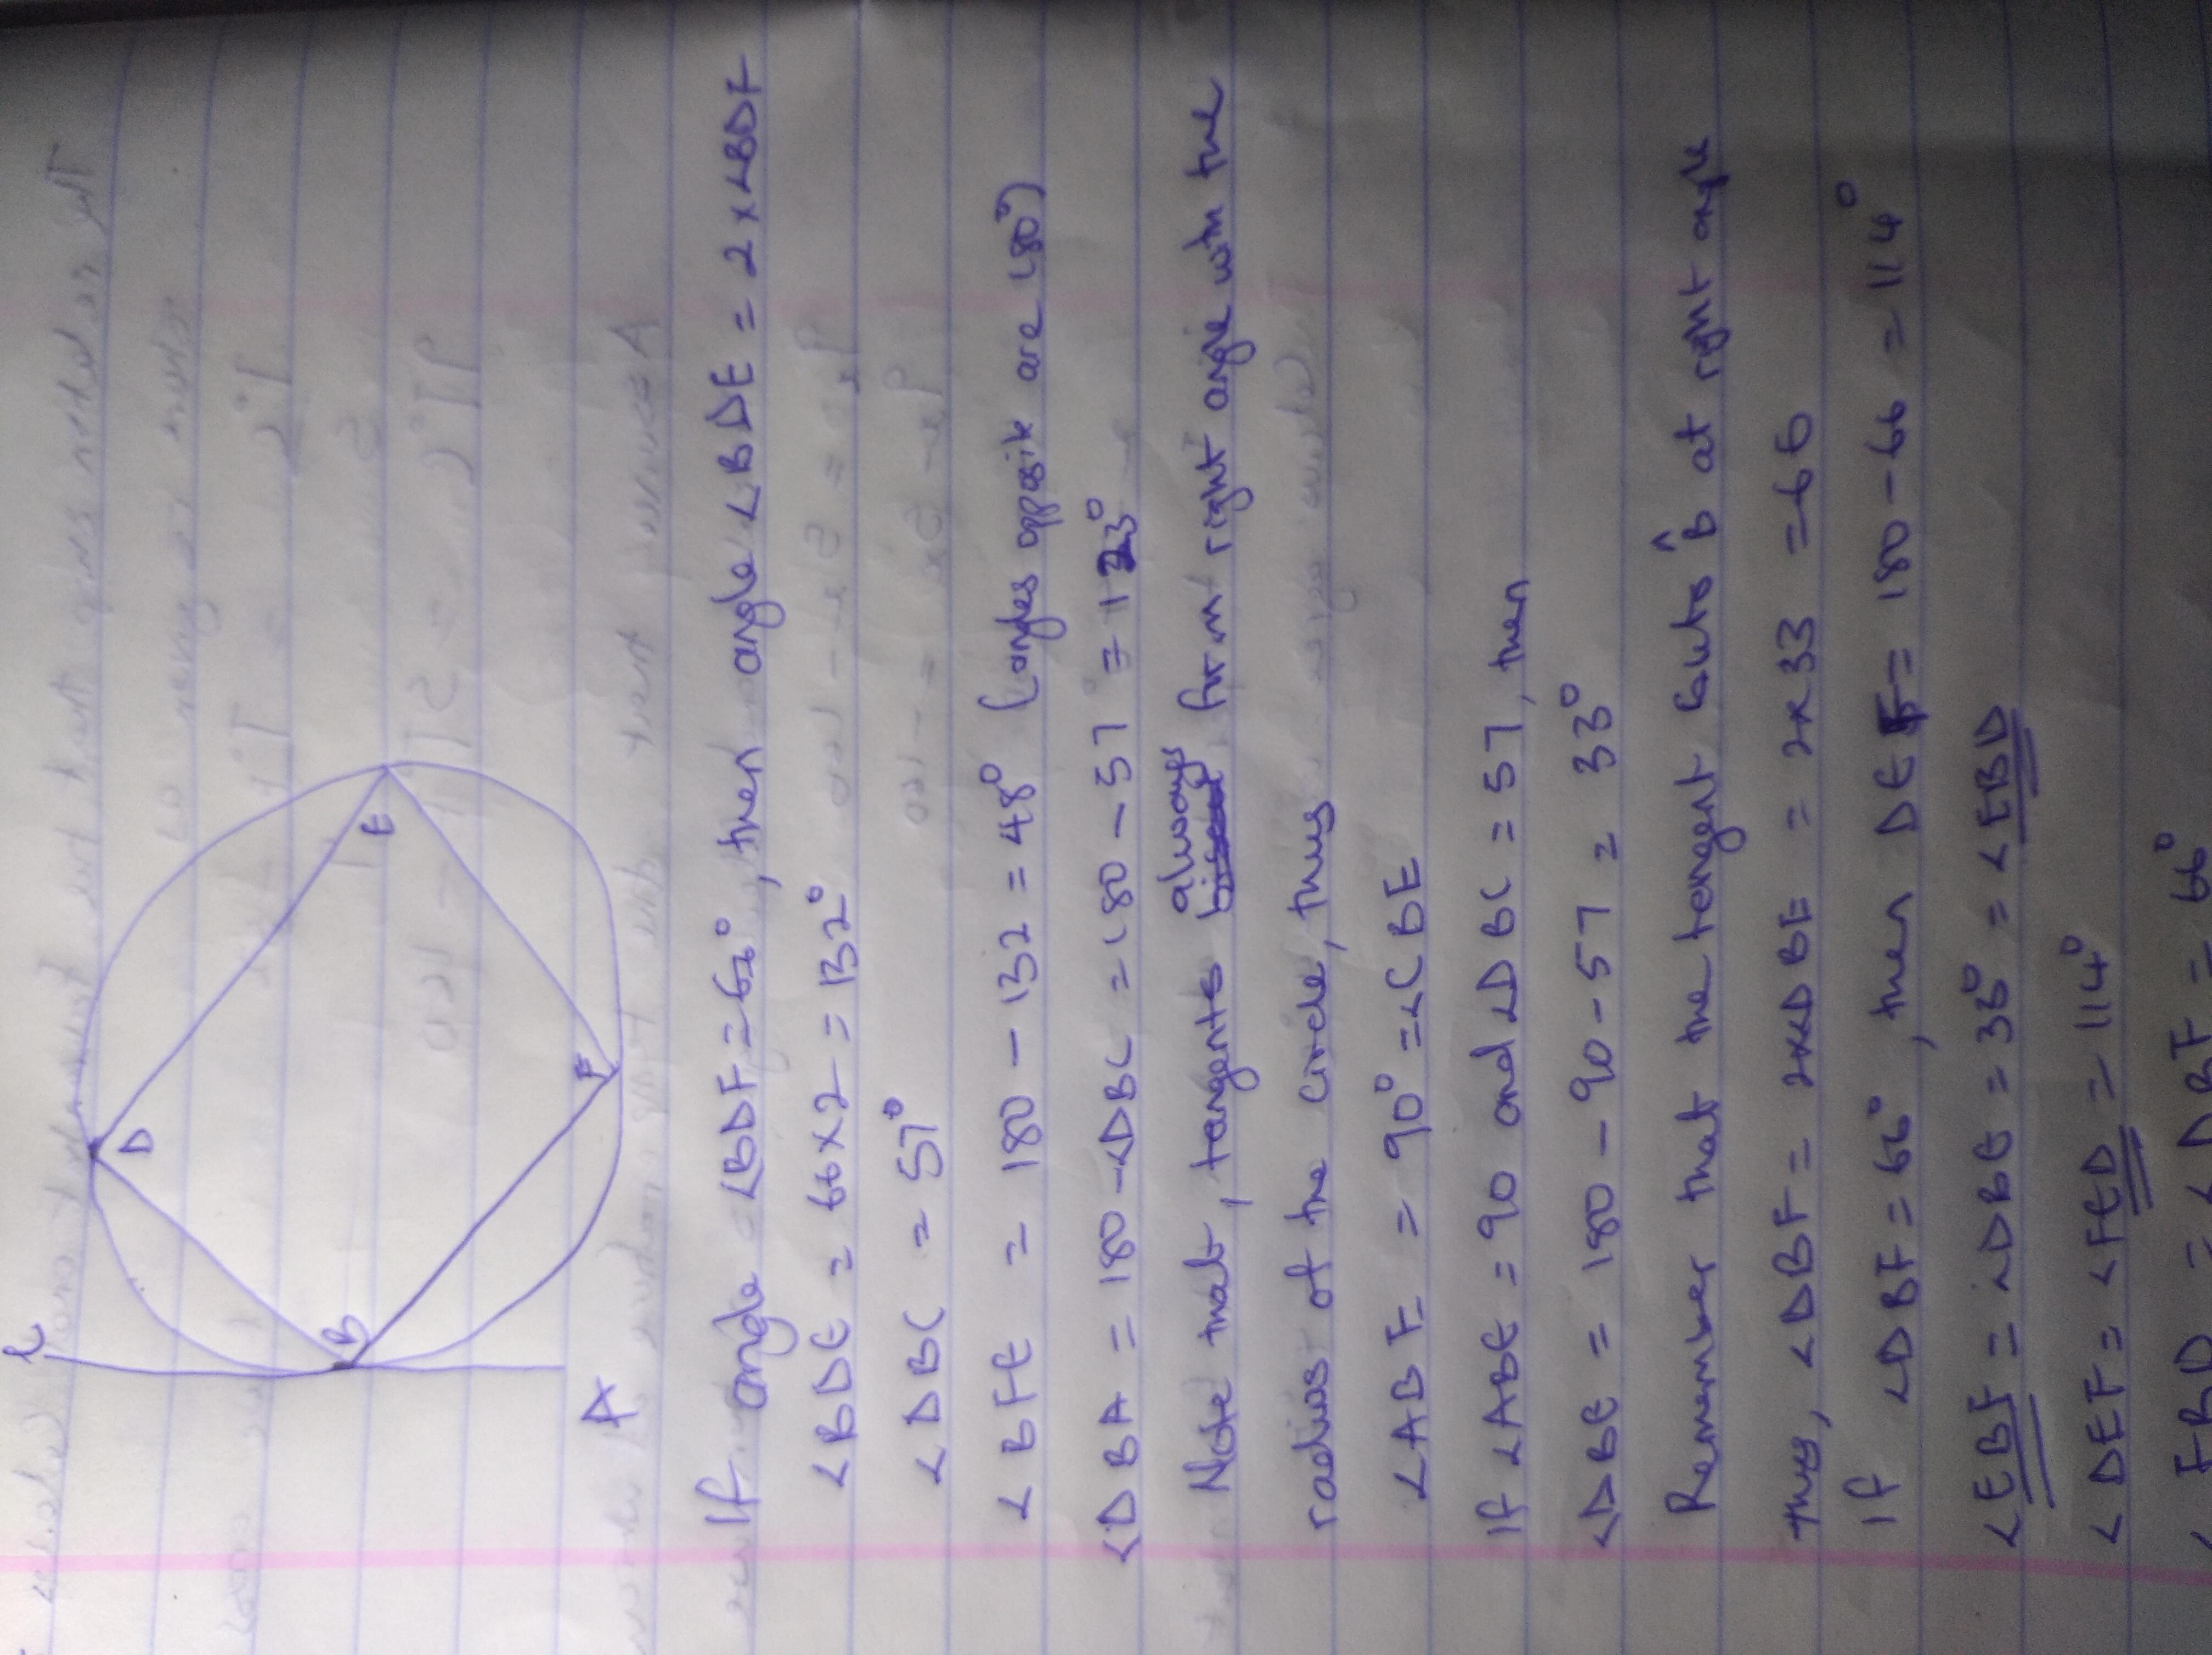 C
D
B
E
F
A
If angle ∠BDF = 66°, then angle ∠BDE = 2 x ∠BDF
∠BDE = 66 x 2 = 132°
∠DBC = 57°
∠BFE = 180 - 132 = 48° (angles opposite are 180°)
∠DBA = 180 - ∠DBC = 180 - 57 = 123°
Note that, tangents always form right angle with the
radius of the circle, thus
∠ABF = 90° = ∠CBE
If ∠ABE = 90 and ∠DBC = 57, then
∠DBE = 180 - 90 - 57 = 33°
Remember that the tangent cuts B̂ at right angle
thus, ∠DBF = 2x∠DBE = 2x33 = 66
If ∠DBF = 66°, then DEF = 180 - 66 = 114°
∠EBF = ∠DBE = 33° = ∠EBD
∠DEF = ∠FED = 114°
∠FBD = ∠DBF = 66°